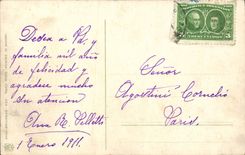 Desea a Vd. y
familia mil años
de felicidad y
agradece mucho
su atención
Ana R.
1 Enero 1911.
Señor
Agostini Cornelio
Paris
5